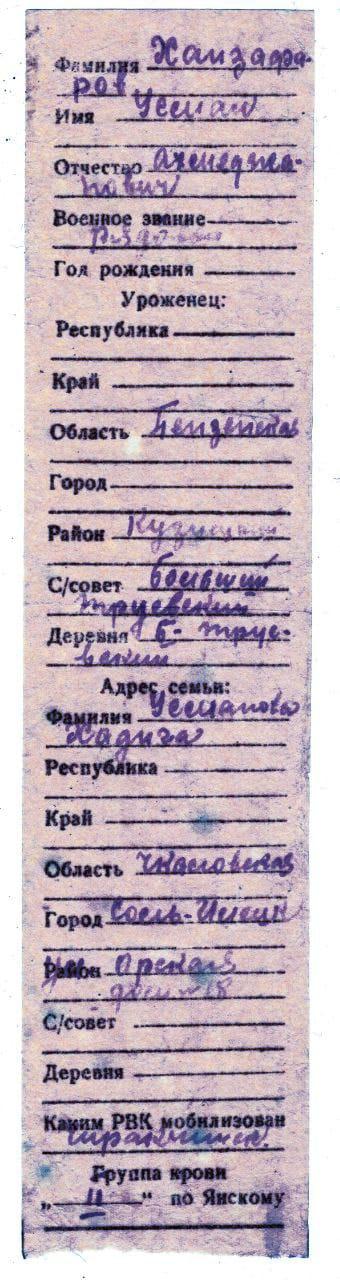 Фамилия Ханзафа-
ров
Имя Усман
Отчество Ахмеджа-
нович
Военное звание
Рядовой
Год рождения
Уроженец:
Республика
Край
Область Пензенская
Город
Район Кузнецкий
С/совет Больший
Труевский
Деревня Б-Труе-
вский
Адрес семьи:
Фамилия Усманова
Хадича
Республика
Край
Область Чкаловская
Город Соль-Илецк
Район Орская
дом № 18
С/совет
Деревня
Каким РВК мобилизован
Группа крови
„ II “ по Янскому